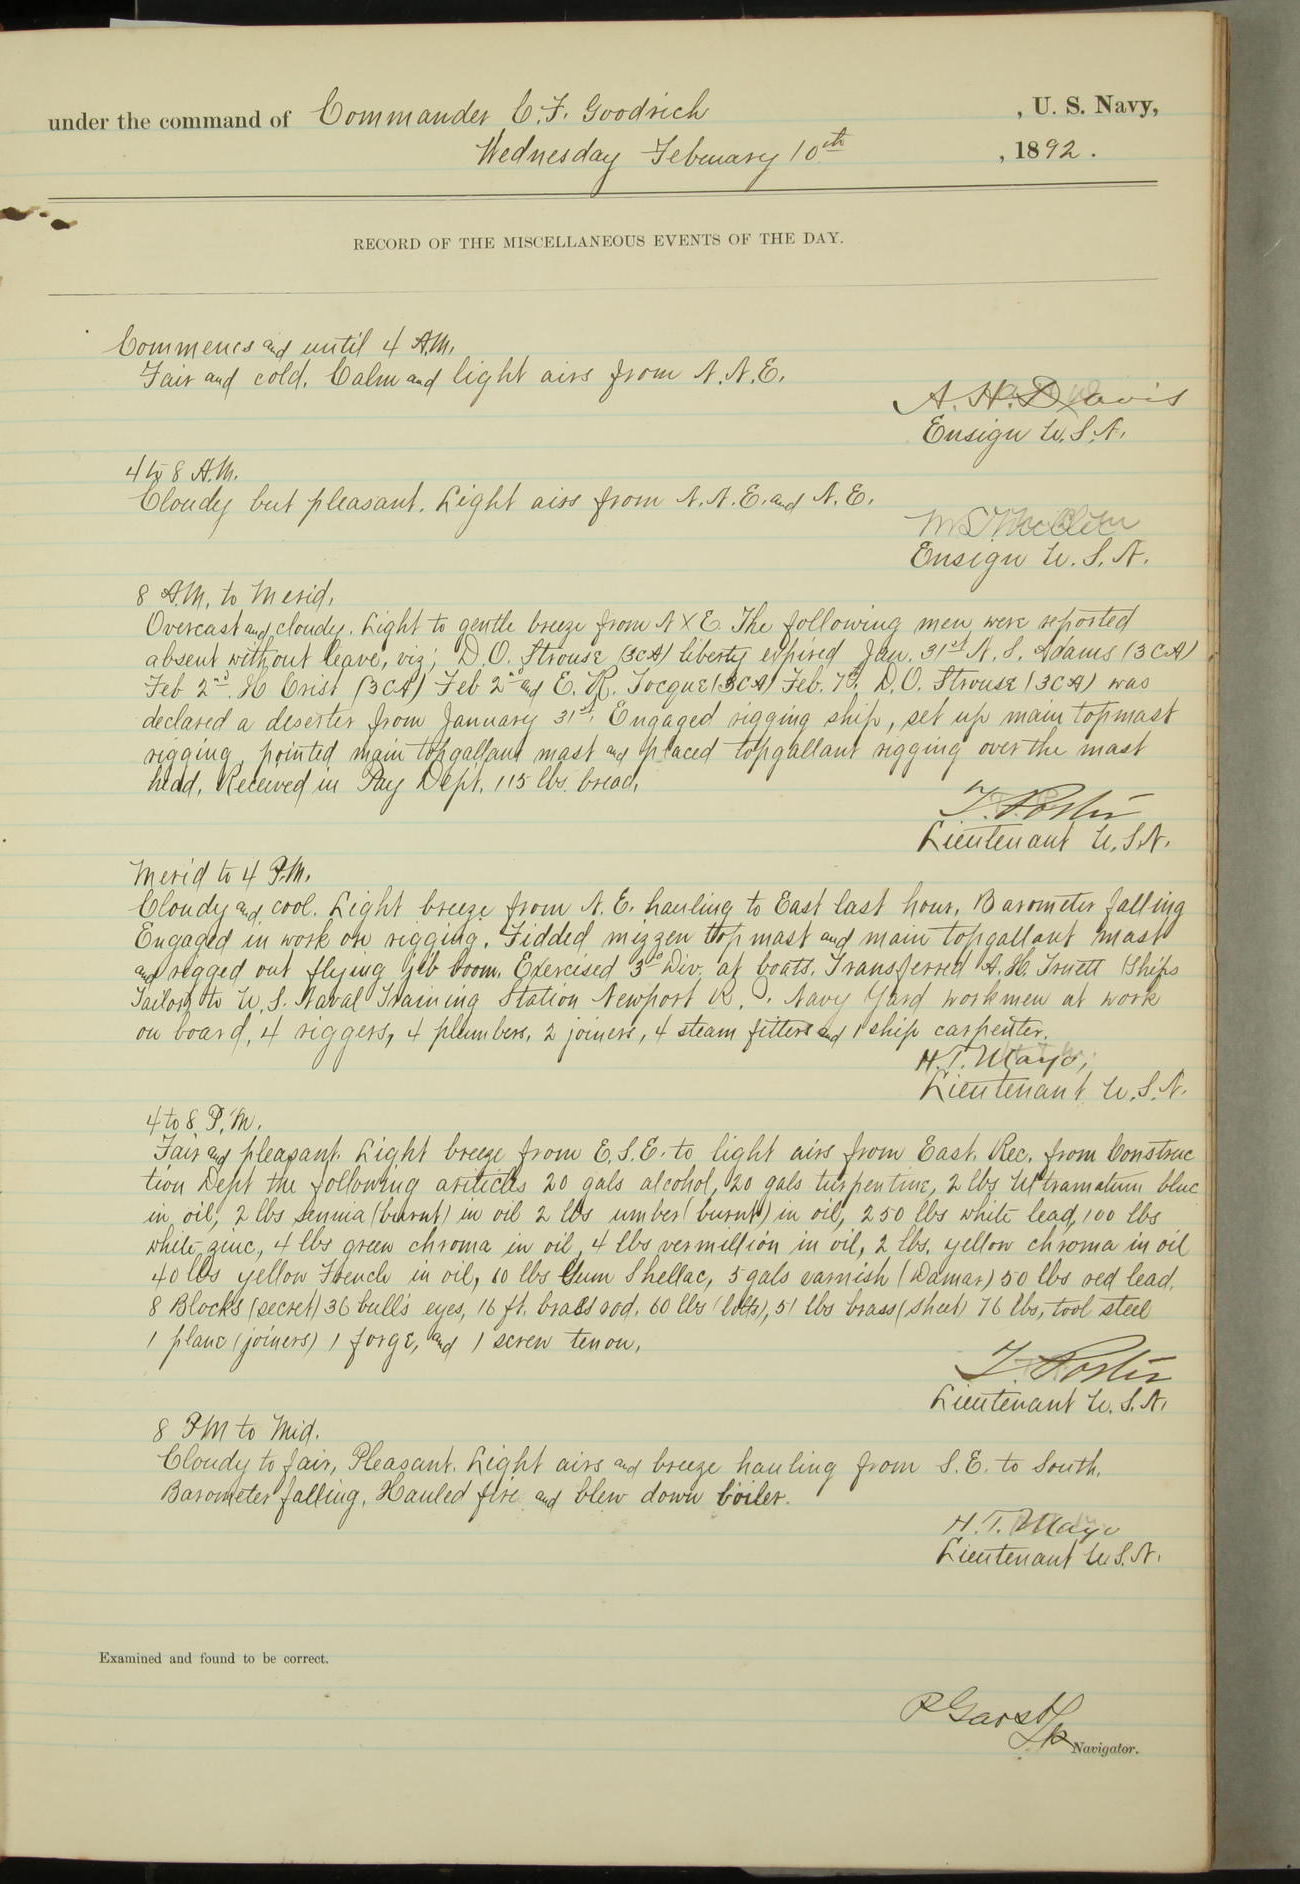 under the command of Commander C. F. Goodrich , U. S. Navy,
Wednesday February 10th , 1892.
RECORD OF THE MISCELLANEOUS EVENTS OF THE DAY.
Commences and until 4 A.M.
Fair and cold. Calm and light airs from N.N.E.
A. H. Davis
Ensign U.S.N.
4 to 8 A.M.
Cloudy but pleasant. Light airs from N.N.E. and N.E.
Ensign U.S.N.
8 A.M. to Merid.
Overcast and cloudy. Light to gentle breeze from N x E. The following men were reported
absent without leave, viz; D. O. Strouse (3CA) liberty expired Jan. 31st N. S. Adams (3CA)
Feb 2nd. H Crist (3CA) Feb 2nd and E. R. Tocque (3CA) Feb. 7th. D. O. Strouse (3CA) was
declared a deserter from January 31st. Engaged rigging ship, set up main topmast
rigging, pointed main topgallant mast and placed topgallant rigging over the mast
head. Received in Pay Dept. 115 lbs. bread.
T. Porter
Lieutenant U.S.N.
Merid to 4 P.M.
Cloudy and cool. Light breeze from N.E. hauling to East last hour. Barometer falling
Engaged in work on rigging. Fidded mizzen topmast and main topgallant mast
and rigged out flying jib boom. Exercised 3d Div. at boats. Transferred A. H. Truett (Ships
Tailor) to U.S. Naval Training Station Newport R.I. Navy Yard workmen at work
on board, 4 riggers, 4 plumbers, 2 joiners, 4 steam fitters and 1 ship carpenter.
H. T. Mayo,
Lieutenant U.S.N.
4 to 8 P.M.
Fair and pleasant. Light breeze from E.S.E. to light airs from East. Rec. from Construc
tion Dept the following articles 20 gals alcohol, 20 gals turpentine, 2 lbs Ultramatum blue
in oil, 2 lbs sienna (burnt) in oil 2 lbs umber (burnt) in oil, 250 lbs white lead, 100 lbs
white zinc, 4 lbs green chroma in oil, 4 lbs vermillion in oil, 2 lbs. yellow chroma in oil
40 lbs yellow French in oil, 10 lbs Gum Shellac, 5 gals varnish (Damar) 50 lbs red lead.
8 Blocks (secret) 36 bull's eyes, 16 ft. brass rod. 60 lbs (bolts), 51 lbs brass (sheet) 76 lbs, tool steel
1 plane (joiners) 1 forge, and 1 screw tenon.
T. Porter
Lieutenant U.S.N.
8 PM to Mid.
Cloudy to fair, Pleasant. Light airs and breeze hauling from S.E. to South.
Barometer falling. Hauled fire and blew down boiler.
H. T. Mayo
Lieutenant U.S.N.
Examined and found to be correct.
P Garst
Navigator.